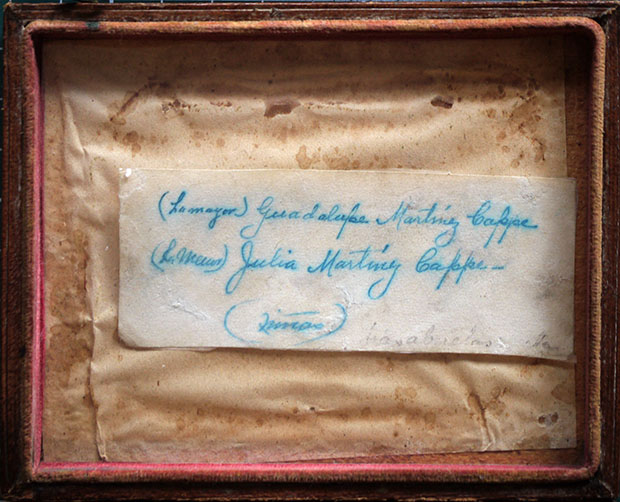 (La mayor) Guadalupe Martínez Cappe
(La Menor) Julia Martínez Cappe –
(niñas)